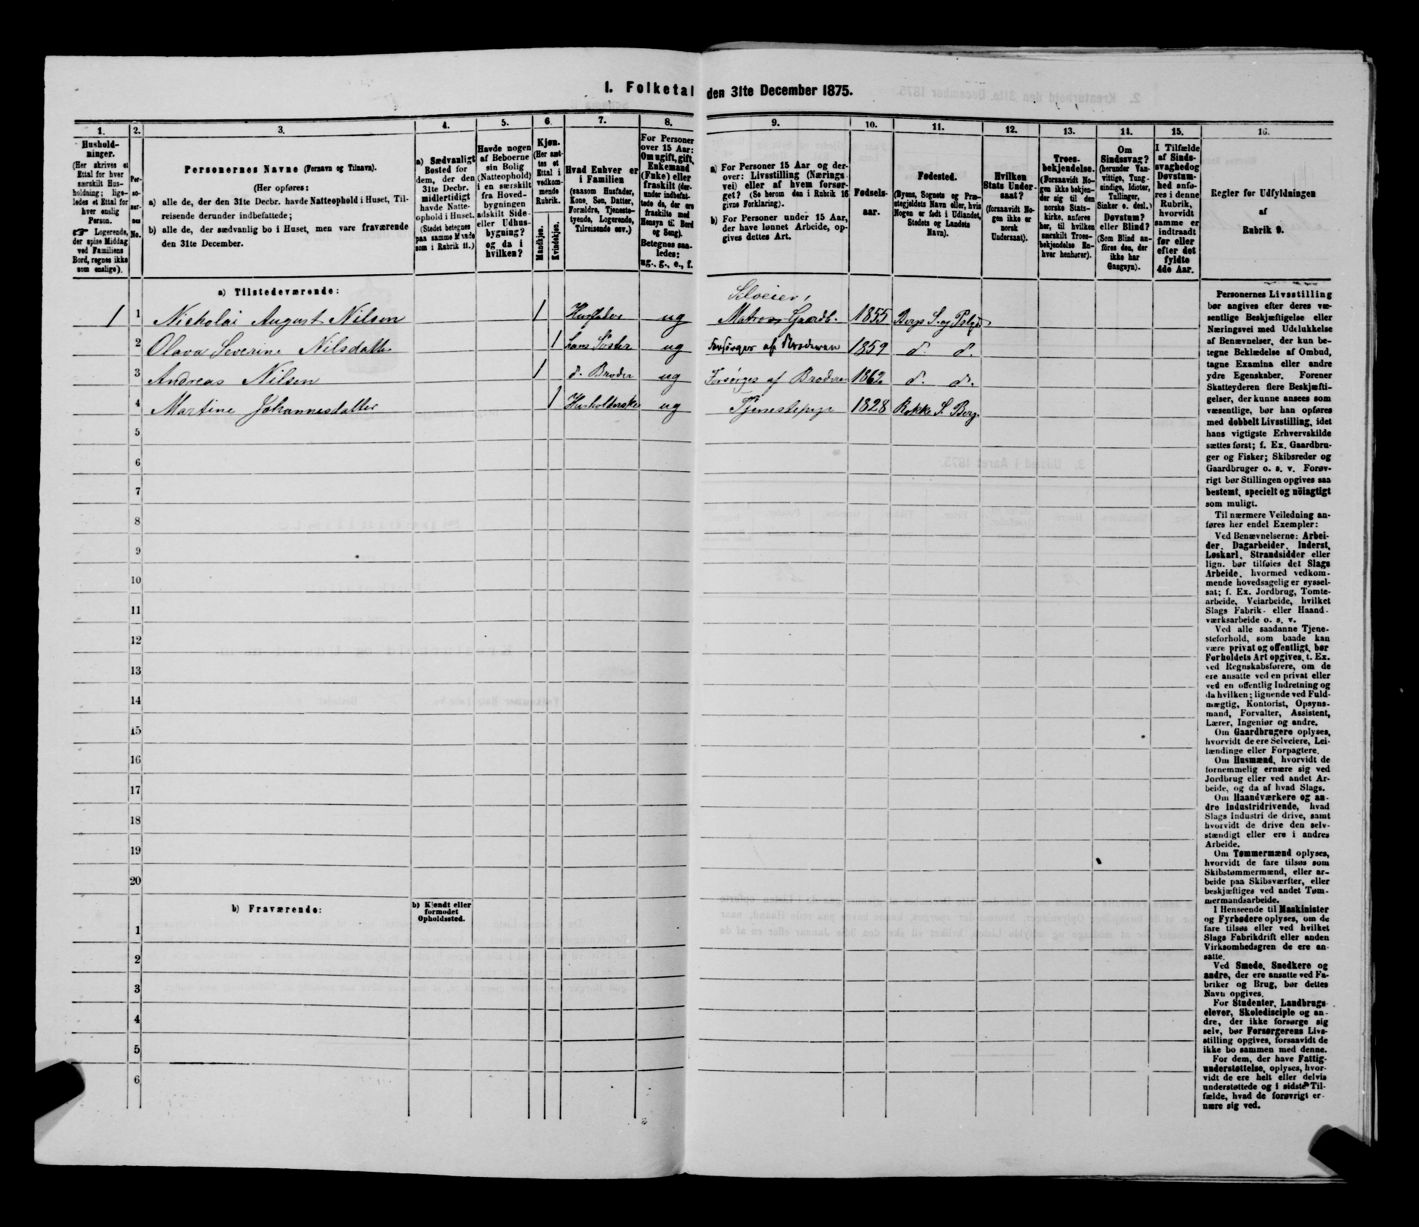 1. Folketal den 31te December 1875.
1.
2.
3.
4.
5.
6.
7.
8.
9.
10.
11.
12.
13.
14.
15.
16.
Hushold-
ninger.
(Her skrives et
Ettal for hver
særskilt Hus-
holdning; lige-
ledes et Ettal for
hver enslig
Person.
☞ Logerende,
der spise Middag
ved Familiens
Bord, regnes ikke
som enslige).
Per-
so-
ner-
nes
No.
Personernes Navne (Fornavn og Tilnavn).
(Her opføres:
a) alle de, der den 31te Decbr. havde Natteophold i Huset, Til-
reisende derunder indbefattede;
b) alle de, der sædvanlig bo i Huset, men vare fraværende
den 31te December.
a) Sædvanligt
Bosted for
dem, der den
31te Decbr.
midlertidigt
havde Natte-
ophold i Huset.
(Stedet betegnes
paa samme Maade
som i Rubrik 11.)
Havde nogen
af Beboerne
sin Bolig
(Natteophold)
i en særskilt
fra Hoved-
bygningen
adskilt Side-
eller Udhus-
bygning?
og da i
hvilken?
Kjøn.
(Her sæt-
tes et
Ettal i
vedkom-
mende
Rubrik.
Mandkjøn.
Kvindekjøn.
Hvad Enhver er
i Familien
(saasom Husfader,
Kone, Søn, Datter,
Forældre, Tjeneste-
tyende, Logerende,
Tilreisende osv.)
For Personer
over 15 Aar:
Om ugift, gift,
Enkemand
(Enke) eller
fraskilt (der-
under indbefat-
tede de, der ere
fraskilte med
Hensyn til Bord
og Seng).
Betegnes saa-
ledes:
ug., g., e., f.
a) For Personer 15 Aar og der-
over: Livsstilling (Nærings-
vei) eller af hvem forsør-
get? (Se herom den i Rubrik 16
givne Forklaring).
b) For Personer under 15 Aar,
der have lønnet Arbeide, op-
gives dettes Art.
Fødsels-
aar.
Fødested.
(Byens, Sognets og Præ-
stegjeldets Navn eller, hvis
Nogen er født i Udlandet,
Stedets og Landets
Navn).
Hvilken
Stats Under-
saat?
(forsaavidt No-
gen ikke er
norsk
Undersaat).
Troes-
bekjendelse.
(Forsaavidt No-
gen ikke bekjen-
der sig til den
norske Stats-
kirke, anføres
her, til hvilken
særskilt Troes-
bekjendelse En-
hver henhører).
Om
Sindssvag?
(herunder Van-
vittige, Tung-
sindige, Idioter,
Tullinger,
Sinker o. desl.)
Døvstum?
eller Blind?
(Som Blind an-
føres den, der
ikke har
Gangsyn).
I Tilfælde
af Sinds-
svaghed og
Døvstum-
hed anfø-
res i denne
Rubrik,
hvorvidt
samme er
indtraadt
før eller
efter det
fyldte
4de Aar.
Regler før Udfyldningen
af
Rubrik 9.
a) Tilstedeværende:
1 1 Nickolai August Nilsen 1 Husfader ug Selveier, Matros Gaardb. 1855 Bergs S. og
2 Olava Severine Nilsdatter 1 hans Søster ug Forsørges af Broderen 1859 d. d.
3 Andreas Nilsen 1 d. Broder ug Forsørges af Broderen 1862 d. d.
4 Martine Johannesdatter 1 Husholderske ug Tjenestepige 1828 Rokke S. Berg
5
6
7
8
9
10
11
12
13
14
15
16
17
18
19
20
b) Fraværende:
b) Kjendt eller
formodet
Opholdssted.
1
2
3
4
5
6
Personernes Livsstilling
bør angives efter deres væ-
sentlige Beskjæftigelse eller
Næringsvei med Udelukkelse
af Benævnelser, der kun be-
tegne Beklædelse af Ombud,
tagne Examina eller andre
ydre Egenskaber. Forener
Skatteyderen flere Beskjæfti-
gelser, der kunne ansees som
væsentlige, bør han opføres
med dobbelt Livsstilling, idet
hans vigtigste Erhvervskilde
sættes først; f. Ex. Gaardbru-
ger og Fisker; Skibsreder og
Gaardbruger o. s. v. Forøv-
rigt bør Stillingen opgives saa
bestemt, specielt og nöiagtigt
som muligt.
Til nærmere Veiledning an-
føres her endel Exempler:
Ved Benævnelserne: Arbei-
der, Dagarbeider, Inderst,
Løskarl, Strandsidder eller
lign. bør tilføies det Slags
Arbeide, hvormed vedkom-
mende hovedsagelig er syssel-
sat; f. Ex. Jordbrug, Tomte-
arbeide, Veiarbeide, hvilket
Slags Fabrik- eller Haand-
værksarbeide o. s. v.
Ved alle saadanne Tjene-
steforhold, som baade kan
være privat og offentligt, bør
Forholdets Art opgives, t. Ex.
ved Regnskabsførere, om de
ere ansatte ved en privat eller
ved en offentlig Indretning og
da hvilken; lignende ved Fuld-
mægtig, Kontorist, Opsyns-
mand, Forvalter, Assistent,
Lærer, Ingeniør og andre.
Om Gaardbrugere oplyses,
hvorvidt de ere Selveiere, Lei-
lændinge eller Forpagtere.
Om Husmænd, hvorvidt de
fornemmelig ernære sig ved
Jordbrug eller ved andet Ar-
beide, og da af hvad Slags.
Om Haandværkere og an-
dre Industridrivende, hvad
Slags Industri de drive, samt
hvorvidt de drive den selv-
stændigt eller ere i andres
Arbeide.
Om Tømmermænd oplyses,
hvorvidt de fare tilsøs som
Skibstømmermænd, eller ar-
beide paa Skibsværfter, eller
beskjæftiges ved andet Tøm-
mermandsarbeide.
I Henseende til Maskinister
og Fyrbødere oplyses, om de
fare tilsøs eller ved hvilket
Slags Fabrikdrift eller anden
Virksomhedsgren de ere an-
satte.
Ved Smede, Snedkere og
andre, der ere ansatte ved Fa-
briker og Brug, bør dettes
Navn opgives.
For Studenter, Landbrugs-
elever, Skoledisciple og an-
dre, der ikke forsørge sig
selv, bør Forsørgerens Livs-
stilling opgives, forsaavidt de
ikke bo sammen med denne.
For dem, der have Fattig-
understøttelse, oplyses, hvor-
vidt de ere helt eller delvis
understøttede og i sidste Til-
fælde, hvad de forøvrigt er-
nære sig ved.